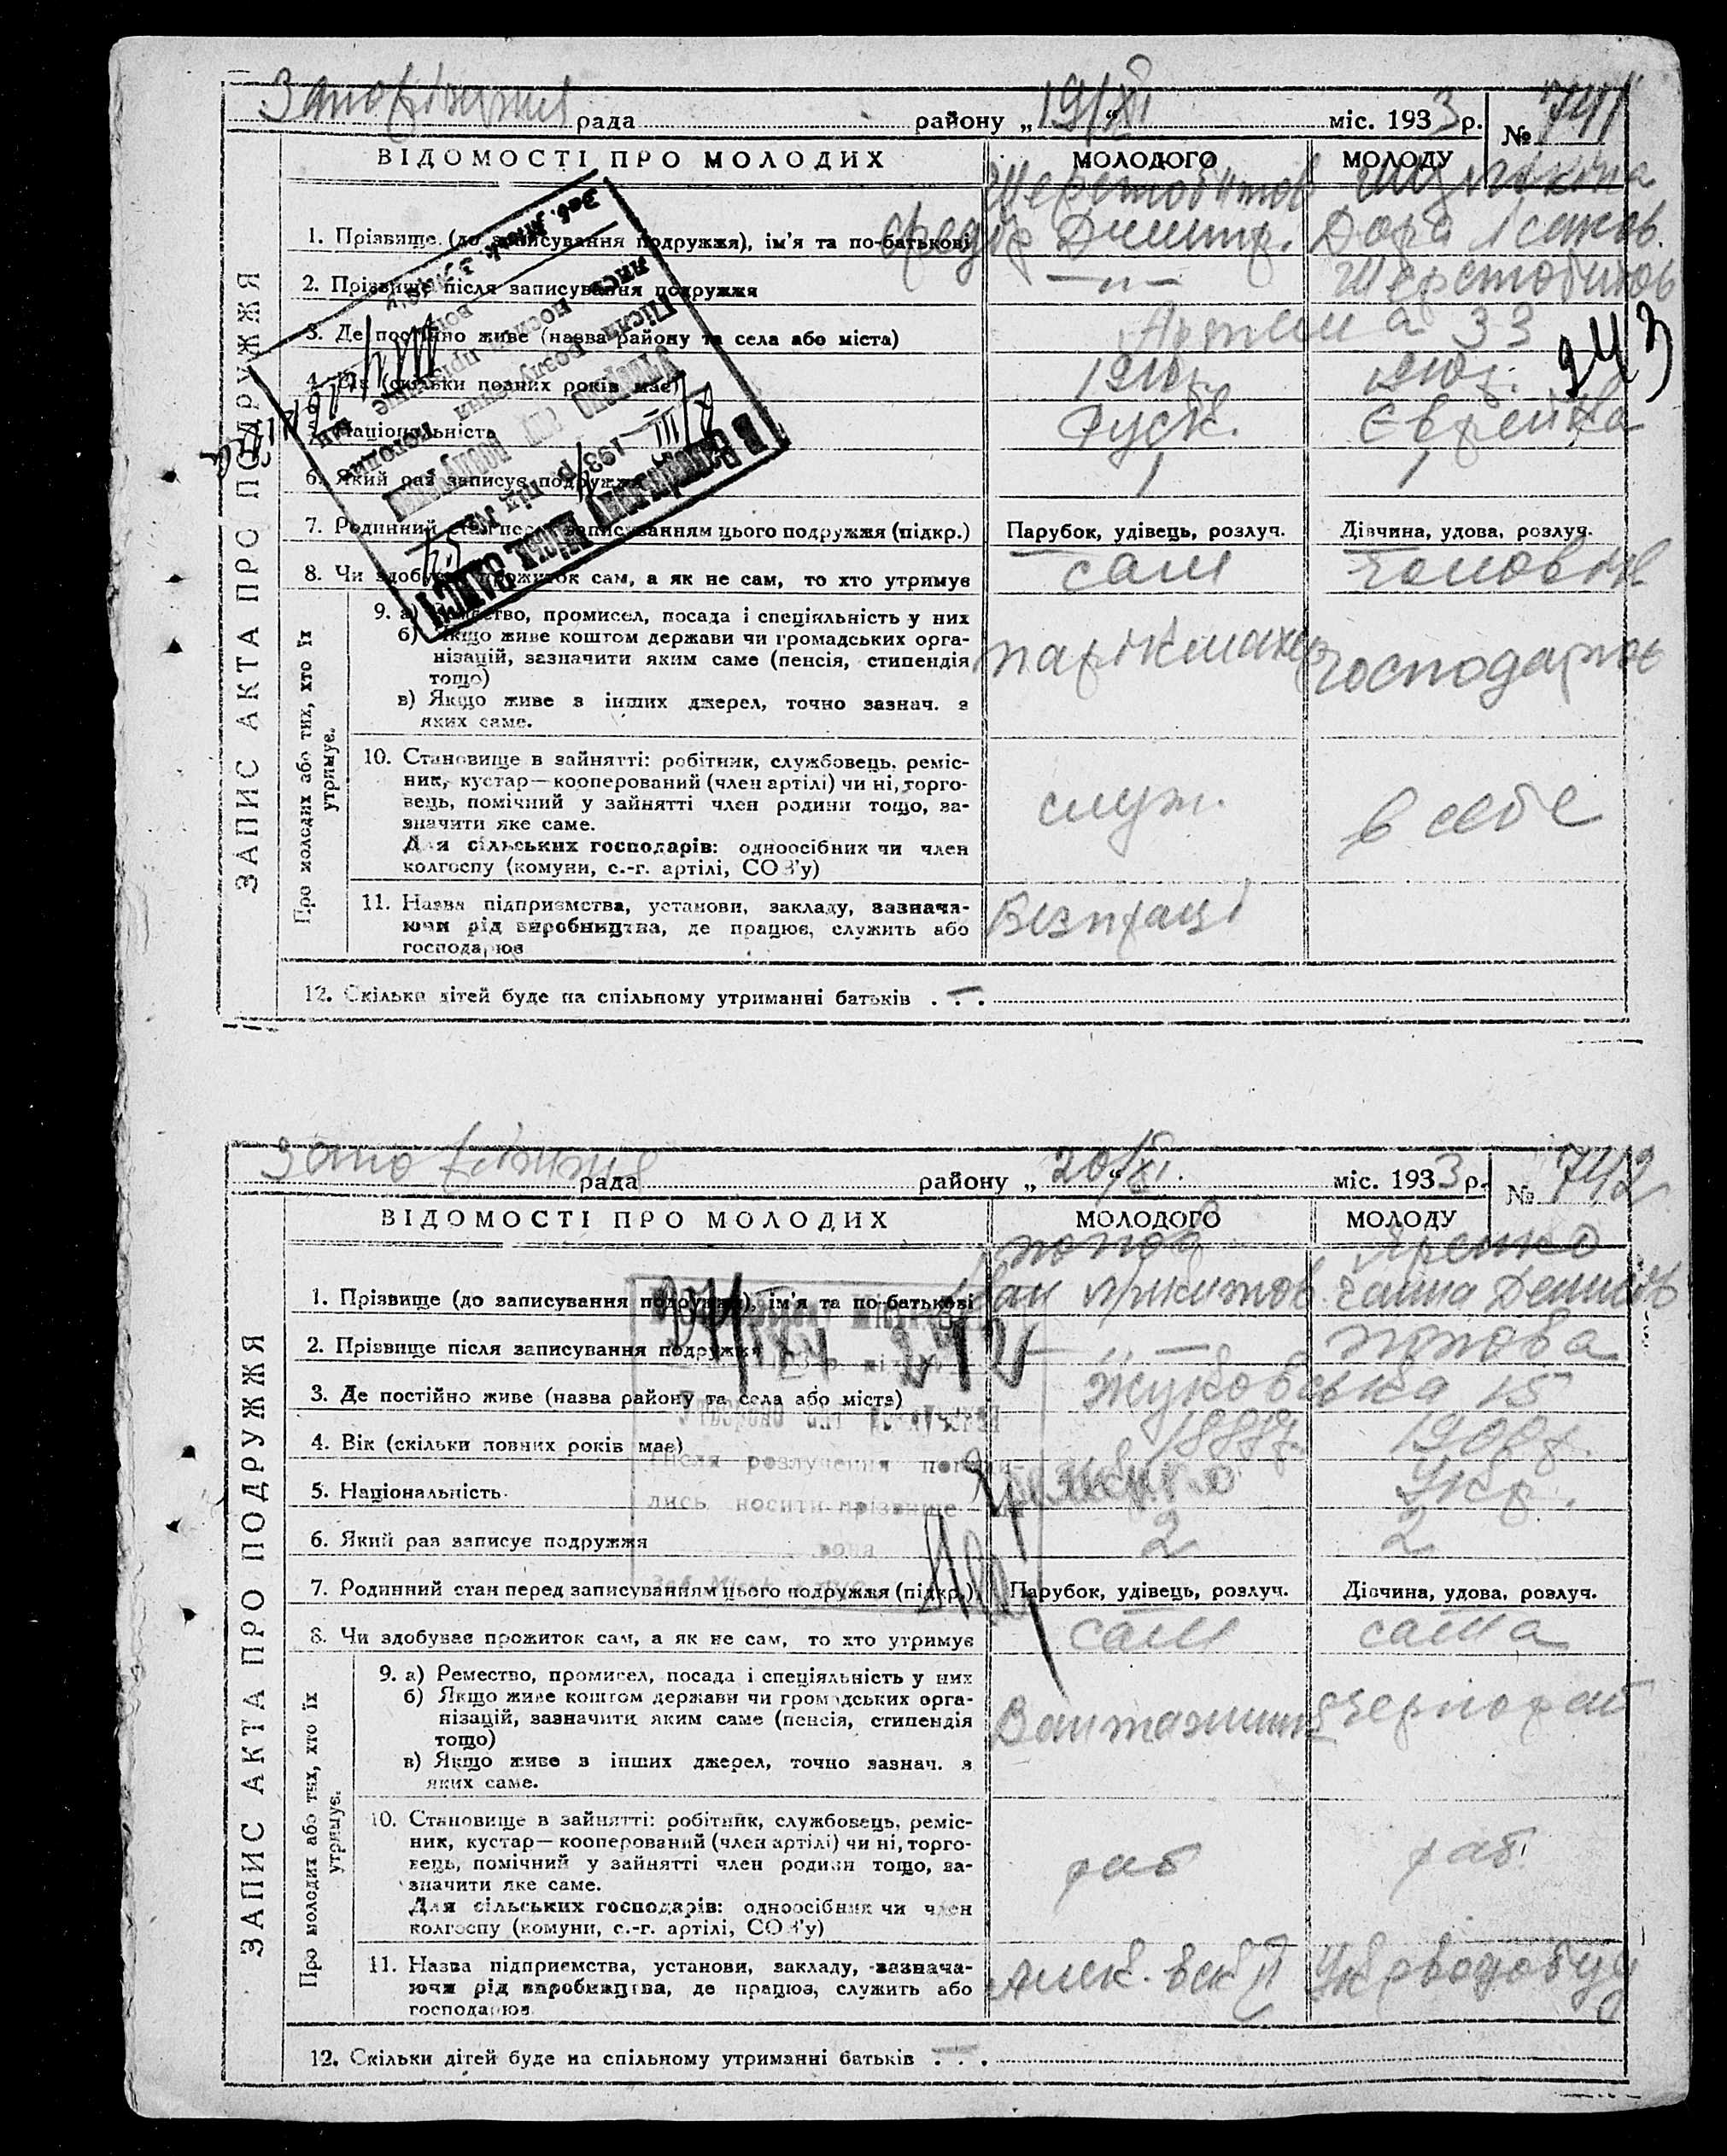 рада району „19/XI“ міс. 1933 р. № 741
ВІДОМОСТІ ПРО МОЛОДИХ МОЛОДОГО МОЛОДУ
ЗАПИС АКТА ПРО ПОДРУЖЖЯ
Шерстобитов
1. Прізвище (до записування подружжя), ім'я та по-батькові Федір Дмитр. Дора
2. Прізвище після записування подружжя —„— Шерстобитов
3. Де постійно живе (назва району та села або міста) Артема 33
243
4. Вік (скільки повних років має) 1910р. 1910р.
5. Національність Руськ. Єврейка
6. Який раз записує подружжя 1 1
7. Родинний стан перед записуванням цього подружжя (підкр.) Парубок, удівець, розлуч. Дівчина, удова, розлуч.
8. Чи здобуває прожиток сам, а як не сам, то хто утримує сам чоловік
Про молодих або тих, хто їх утримує.
9. а) Ремество, промисел, посада і спеціяльність у них
б) Якщо живе коштом держави чи громадських орга-
нізацій, зазначити яким саме (пенсія, стипендія
тощо) парікмахер господарює
в) Якщо живе з інших джерел, точно зазнач. з
яких саме.
10. Становище в зайнятті: робітник, службовець, реміс-
ник, кустар—кооперований (член артілі) чи ні, торго-
вець, помічний у зайнятті член родини тощо, за-
значити яке саме. служ. в себе
Для сільських господарів: одноосібник чи член
колгоспу (комуни, с.-г. артілі, СОЗ'у)
11. Назва підприємства, установи, закладу, зазнача-
ючи рід виробництва, де працює, служить або
господарює
12. Скільки дітей буде на спільному утриманні батьків . . . —
рада району „20/XI“ міс. 1933 р. № 742
ВІДОМОСТІ ПРО МОЛОДИХ МОЛОДОГО МОЛОДУ
ЗАПИС АКТА ПРО ПОДРУЖЖЯ
Попов Яременко
1. Прізвище (до записування подружжя), ім'я та по-батькові Іван Микитов. Ганна Денисов
2. Прізвище після записування подружжя — „ — Попова
3. Де постійно живе (назва району та села або міста) Жуковська 15
4. Вік (скільки повних років має)
5. Національність Укр.
6. Який раз записує подружжя 2 2
7. Родинний стан перед записуванням цього подружжя (підкр.) Парубок, удівець, розлуч. Дівчина, удова, розлуч.
8. Чи здобуває прожиток сам, а як не сам, то хто утримує сам сама
Про молодих або тих, хто їх утримує.
9. а) Ремество, промисел, посада і спеціяльність у них
б) Якщо живе коштом держави чи громадських орга-
нізацій, зазначити яким саме (пенсія, стипендія
тощо) Вантажник чернораб
в) Якщо живе з інших джерел, точно зазнач. з
яких саме.
10. Становище в зайнятті: робітник, службовець, реміс-
ник, кустар—кооперований (член артілі) чи ні, торго-
вець, помічний у зайнятті член родини тощо, за-
значити яке саме. раб раб.
Для сільських господарів: одноосібник чи член
колгоспу (комуни, с.-г. артілі, СОЗ'у)
11. Назва підприємства, установи, закладу, зазнача-
ючи рід виробництва, де працює, служить або
господарює
12. Скільки дітей буде на спільному утриманні батьків . . . —